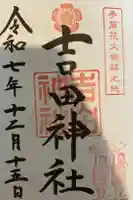 吉田神社
令和七年十二月十五日